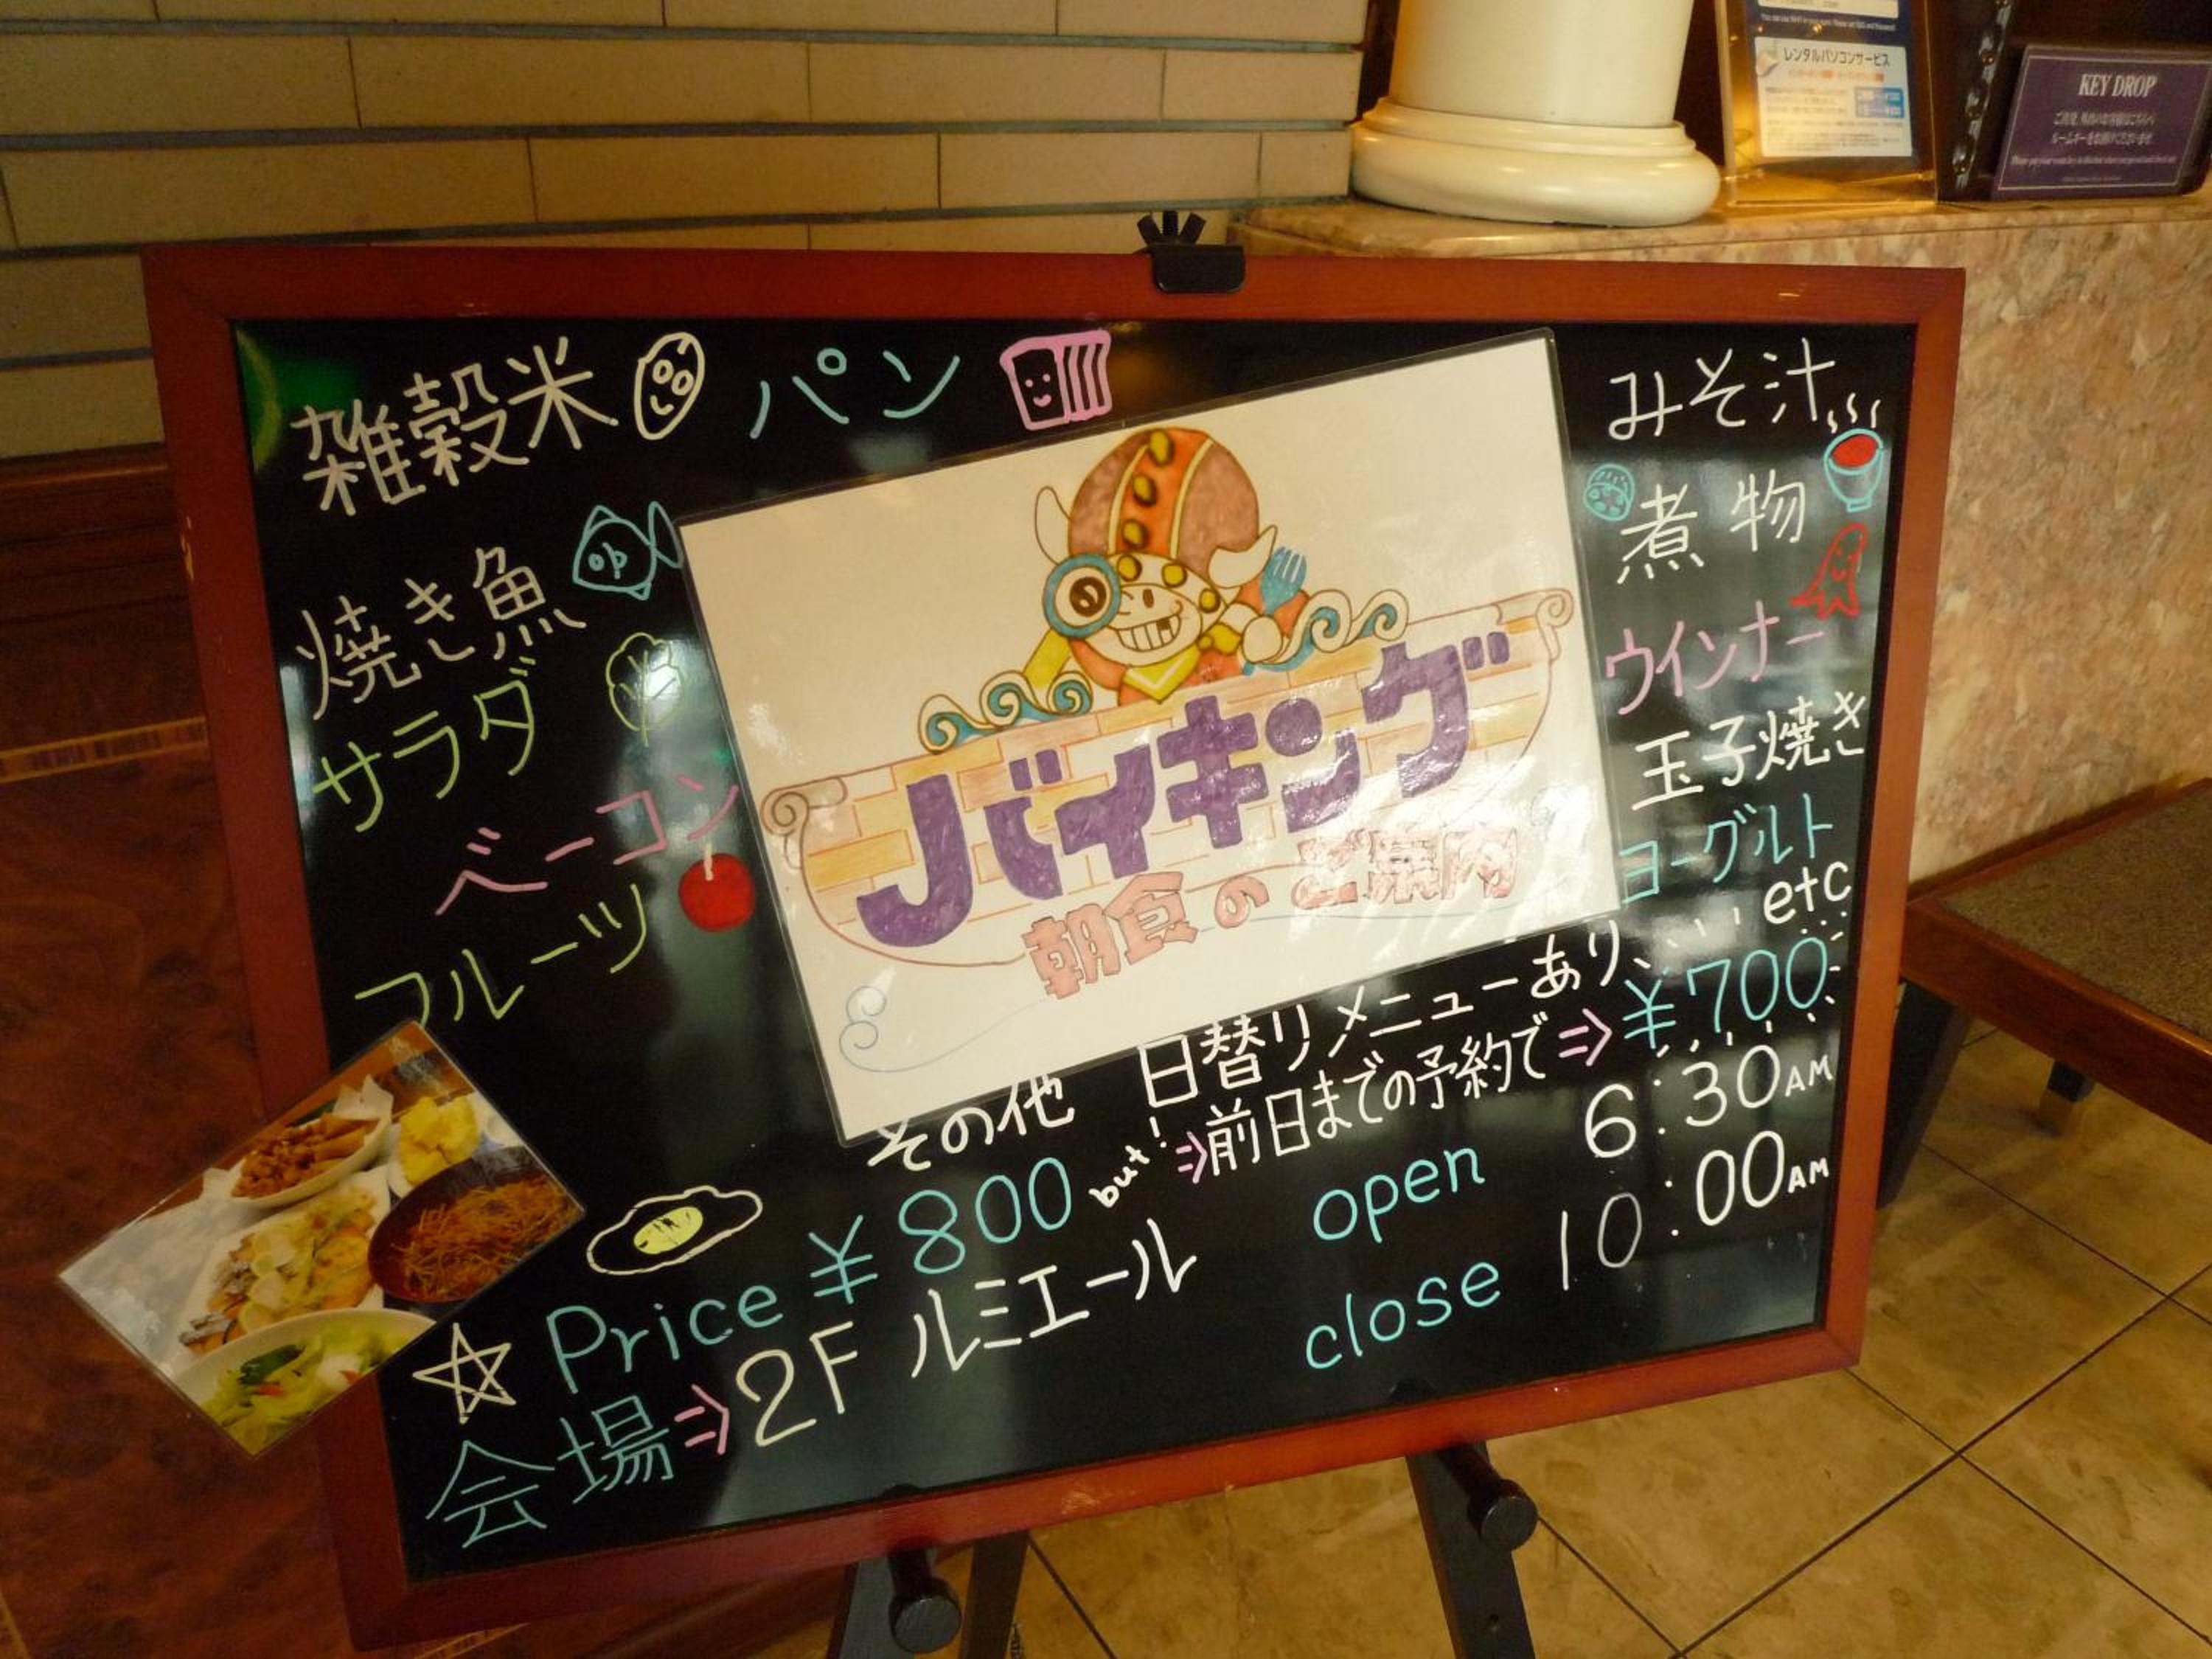 雑穀米 パン
焼き魚
サラダ
ベーコン
フルーツ
バイキング
朝食のご案内
みそ汁
煮物
ウインナー
玉子焼き
ヨーグルト
etc
その他 日替りメニューあり、
☆ Price ¥800 but! ⇒前日までの予約で⇒ ¥700
会場⇒2F ルミエール
open 6:30AM
close 10:00AM
レンタルパソコンサービス
KEY DROP